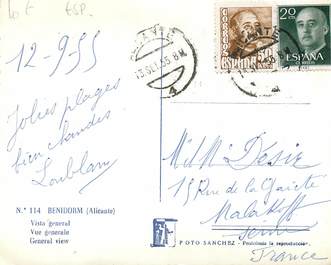 10 € ESP.
12-9-55
Jolies plages
bien chaudes
Loublan
N.º 114 BENIDORM (Alicante)
Vista general
Vue generale
General view
13 SET. 55 8 M.
4
CORREOS
ESPAÑA
20 CTS
ESPAÑA
CORREOS
M. et Mme Désir
15 Rue de la Gaieté
Malakoff
Seine
France
FOTO SANCHEZ - Prohibida la reproducción.